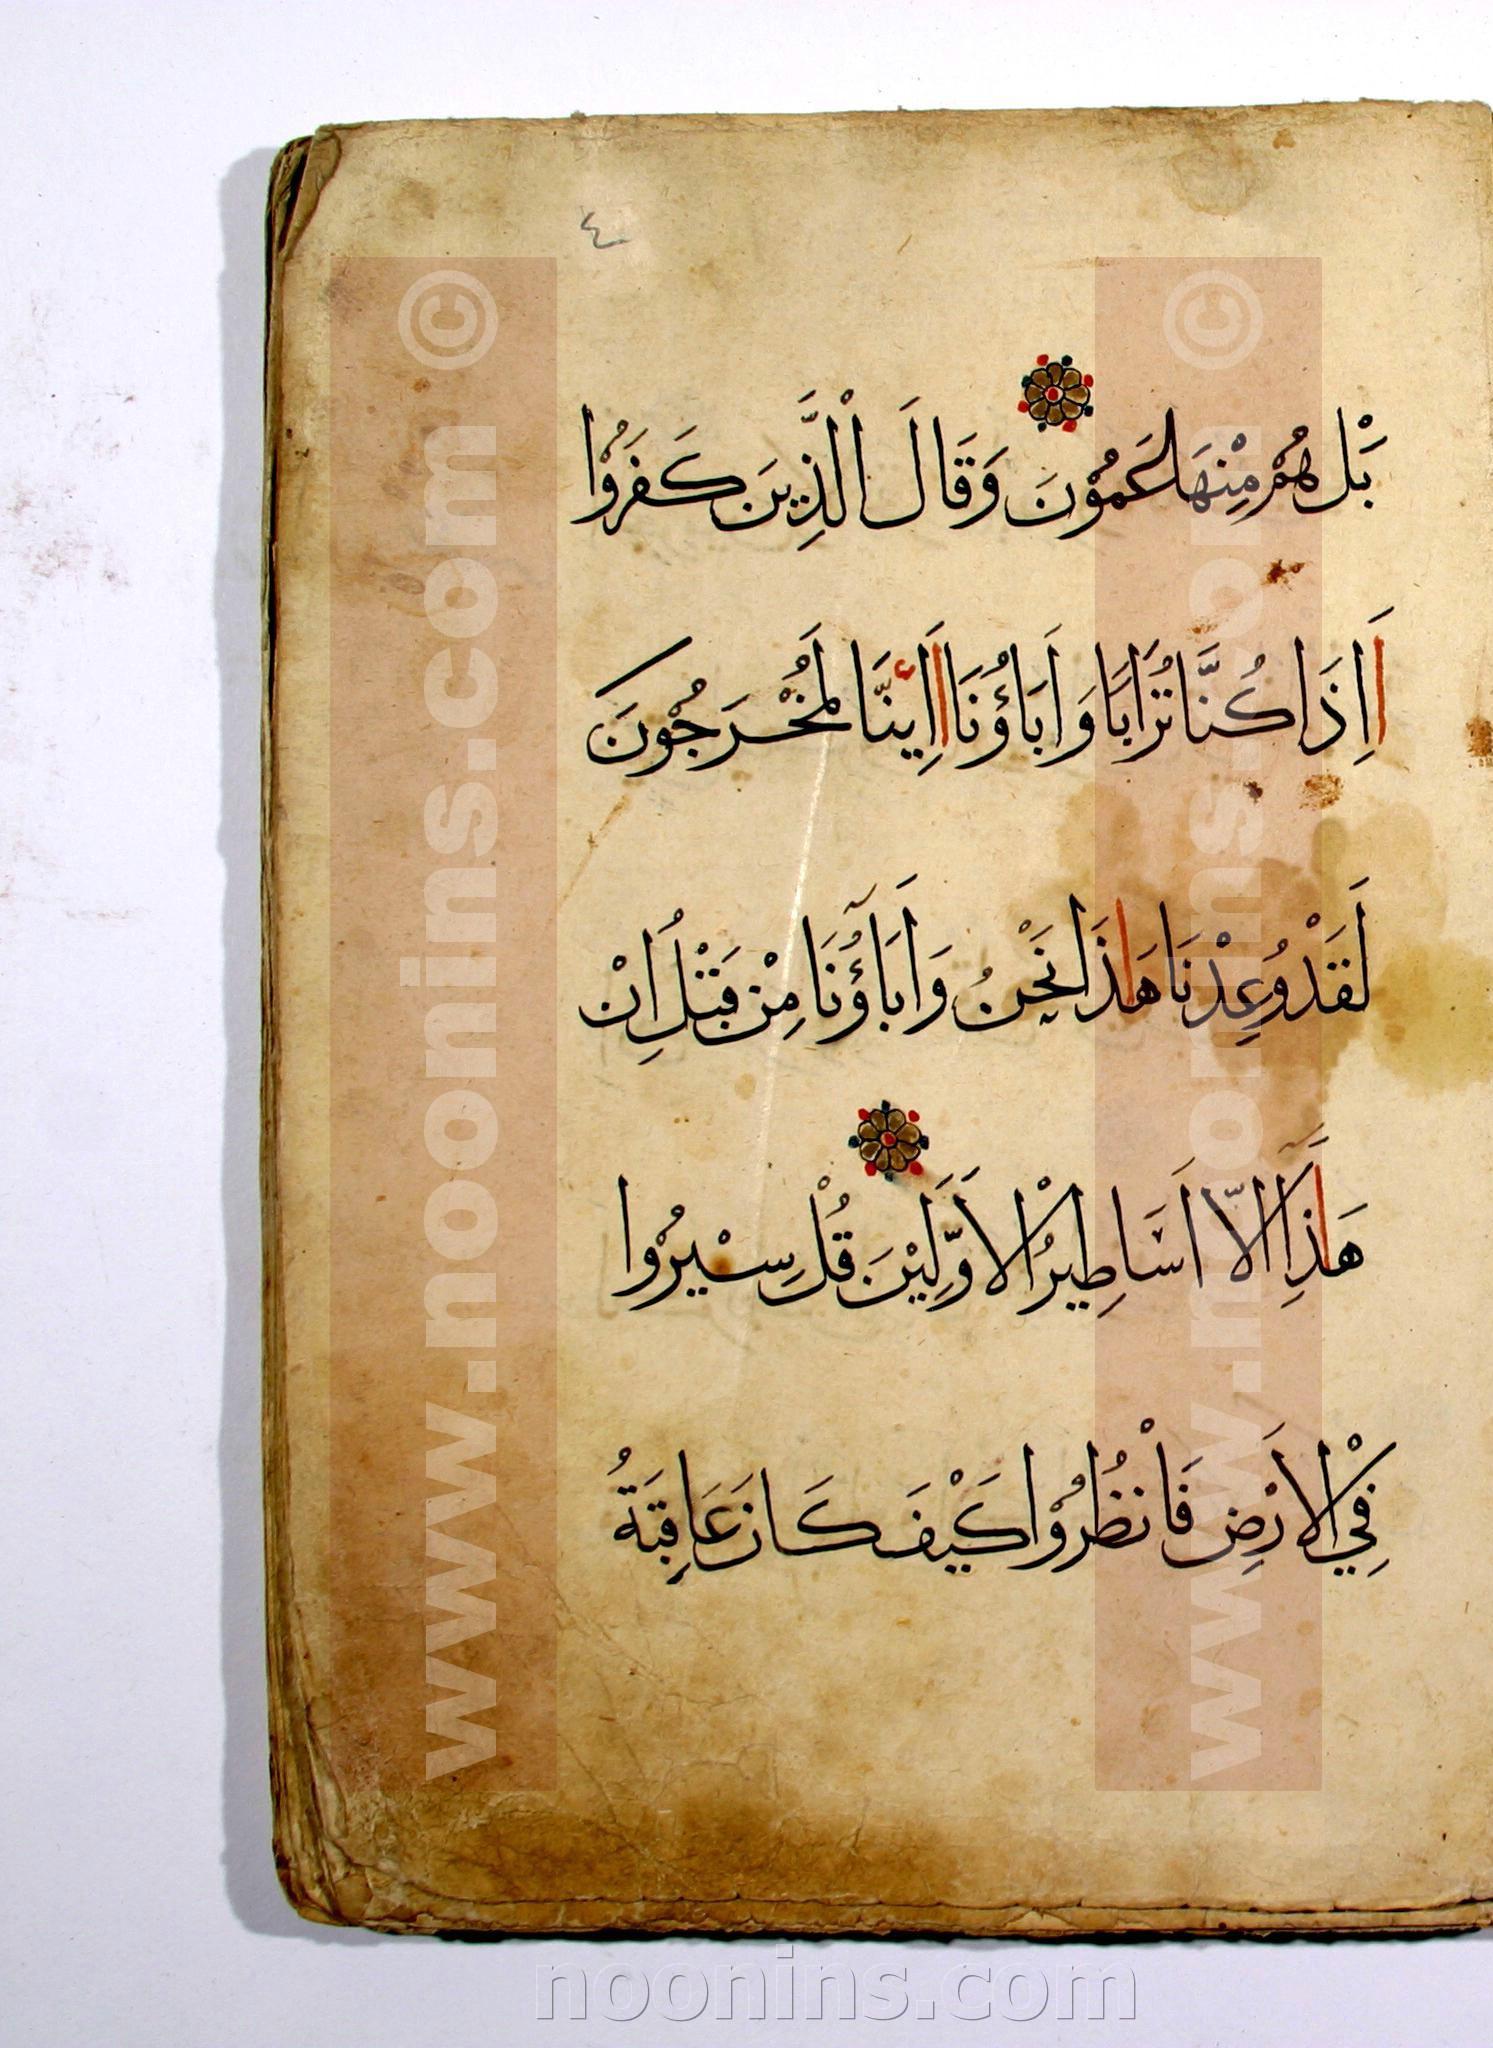 ٤
بَلْ هُمْ مِنْهَا عَمُوْنَ وَقَالَ الَّذِيْنَ كَفَرُوْا
اَاِذَا كُنَّا تُرَابًا وَاَبَاؤُنَا اَاِئنَّا لَمُخْرَجُوْنَ
لَقَدْ وُعِدْنَا هَاذَا نَحْنُ وَاَبَاؤُنَا مِنْ قَبْلُ اِنْ
هَاذَا اِلاّ اَسَاطِيْرُ الْاَوَّلِيْنَ قُلْ سِيْرُوْا
فِي الْاَرْضِ فَانْظُرُوْا كَيْفَ كَانَ عَاقِبَةُ
www.noonins.com ©
www.noonins.com ©
noonins.com